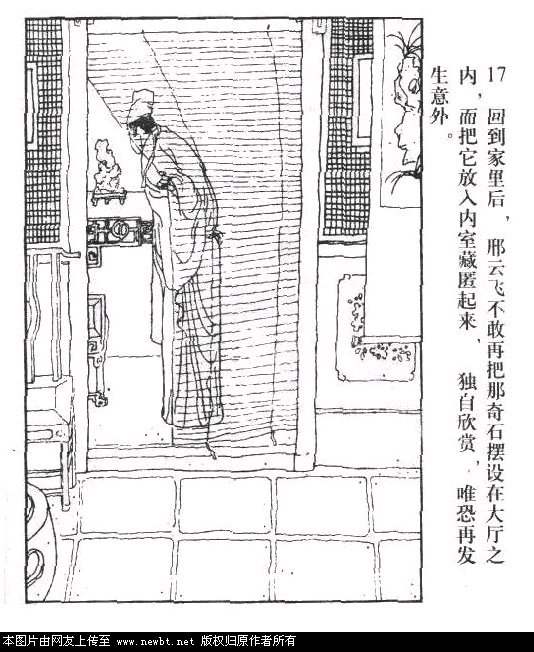 17 回到家里后，邢云飞不敢再把那奇石摆设在大厅之
内，而把它放入内室藏匿起来，独自欣赏，唯恐再发
生意外。
本图片由网友上传至 www.newbt.net 版权归原作者所有